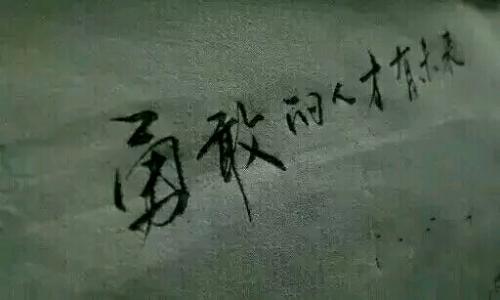 勇敢的人才有未来